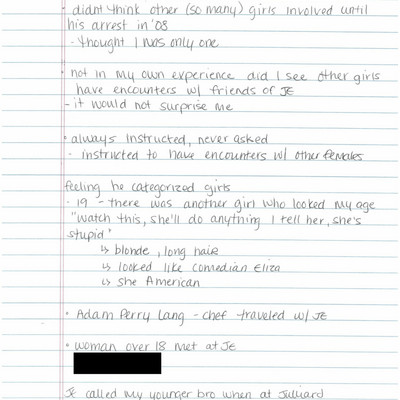 · didnt think other (so many) girls involved until
his arrest in '08
- thought I was only one
· not in my own experience did I see other girls
have encounters w/ friends of JE
- it would not surprise me
· always instructed, never asked
- instructed to have encounters w/ other females
feeling he categorized girls
· 19 - there was another girl who looked my age
"watch this, she'll do anything I tell her, she's
stupid"
↳ blonde, long hair
↳ looked like comedian Eliza
↳ she American
· Adam Perry Lang - chef traveled w/ JE
· woman over 18 met at JE
JE called my younger bro when at Julliard